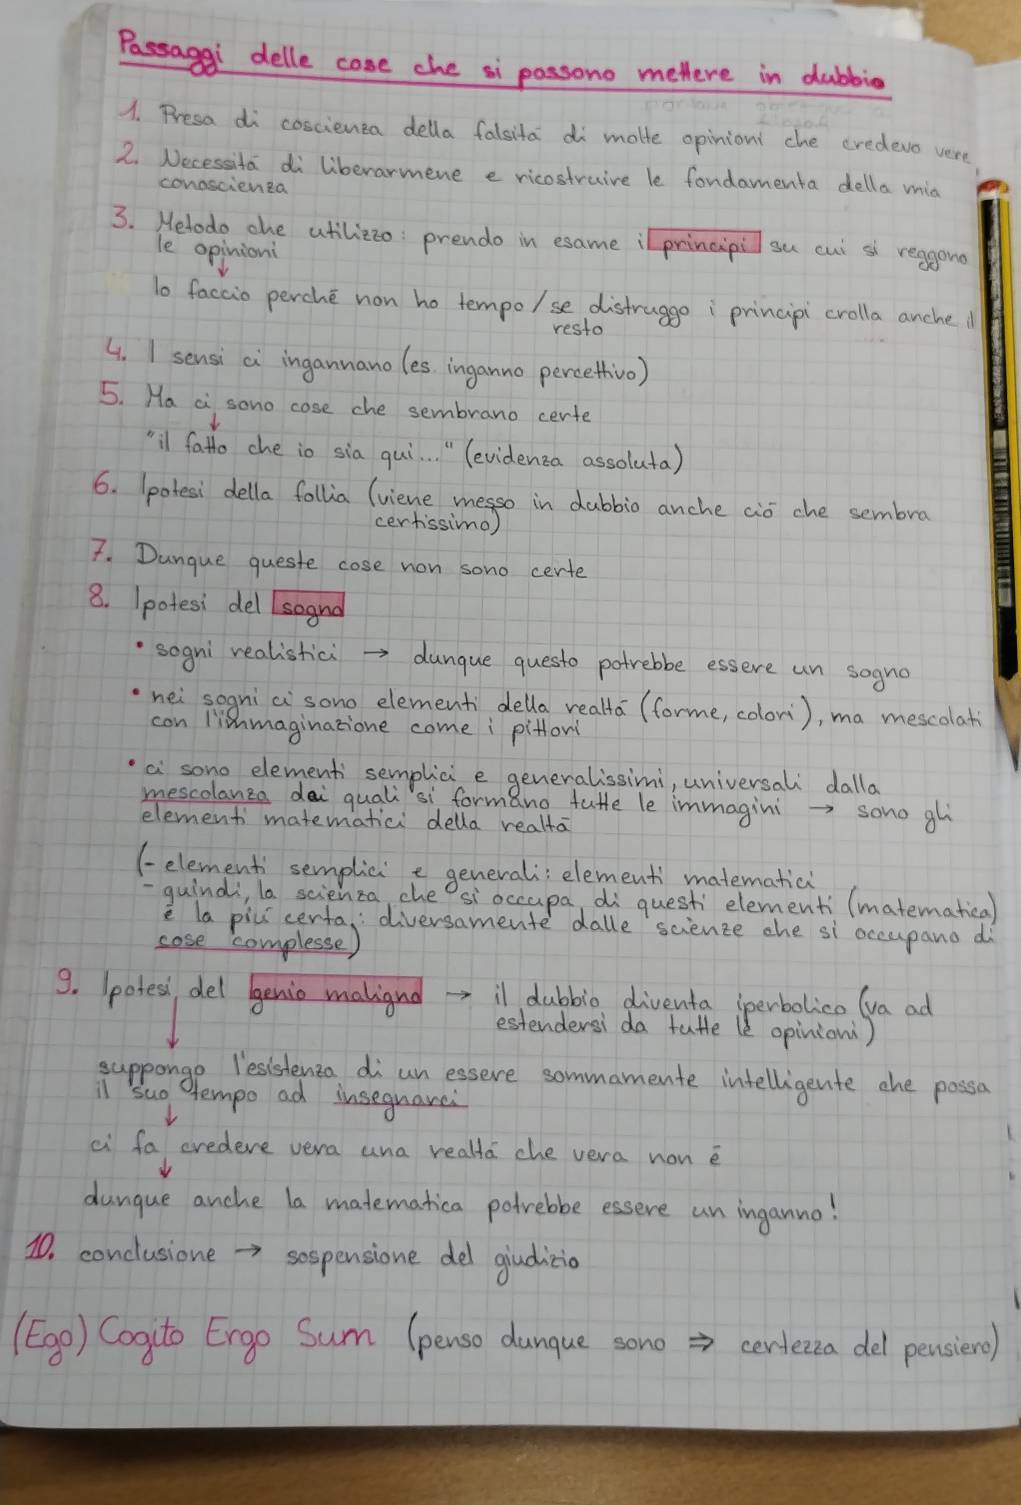 Passaggi delle cose che si possono mettere in dubbio
1. Presa di coscienza della falsità di molte opinioni che credevo vere
2. Necessità di liberarmene e ricostruire le fondamenta della mia
conoscienza
3. Metodo che utilizzo: prendo in esame i principi su cui si reggono
le opinioni
↓
lo faccio perché non ho tempo/se distruggo i principi crolla anche il
resto
4. I sensi ci ingannano (es. inganno percettivo)
5. Ma ci sono cose che sembrano certe
↓
"il fatto che io sia qui..." (evidenza assoluta)
6. Ipotesi della follia (viene messo in dubbio anche ciò che sembra
certissimo)
7. Dunque queste cose non sono certe
8. Ipotesi del sogno
• sogni realistici → dunque questo potrebbe essere un sogno
• nei sogni ci sono elementi della realtà (forme, colori), ma mescolati
con l'immaginazione come i pittori
• ci sono elementi semplici e generalissimi, universali dalla
mescolanza dei quali si formano tutte le immagini → sono gli
elementi matematici della realtà
(- elementi semplici e generali: elementi matematici
- quindi, la scienza che si occupa di questi elementi (matematica)
è la più certa, diversamente dalle scienze che si occupano di
cose complesse)
9. Ipotesi del genio maligno → il dubbio diventa iperbolico (va ad
estendersi da tutte le opinioni)
↓
suppongo l'esistenza di un essere sommamente intelligente che possa
il suo tempo ad insegnarci
↓
ci fa credere vera una realtà che vera non è
↓
dunque anche la matematica potrebbe essere un inganno!
10. conclusione → sospensione del giudizio
(Ego) Cogito Ergo Sum (penso dunque sono ⇒ certezza del pensiero)